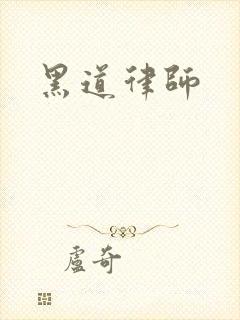 黑道律師
盧奇